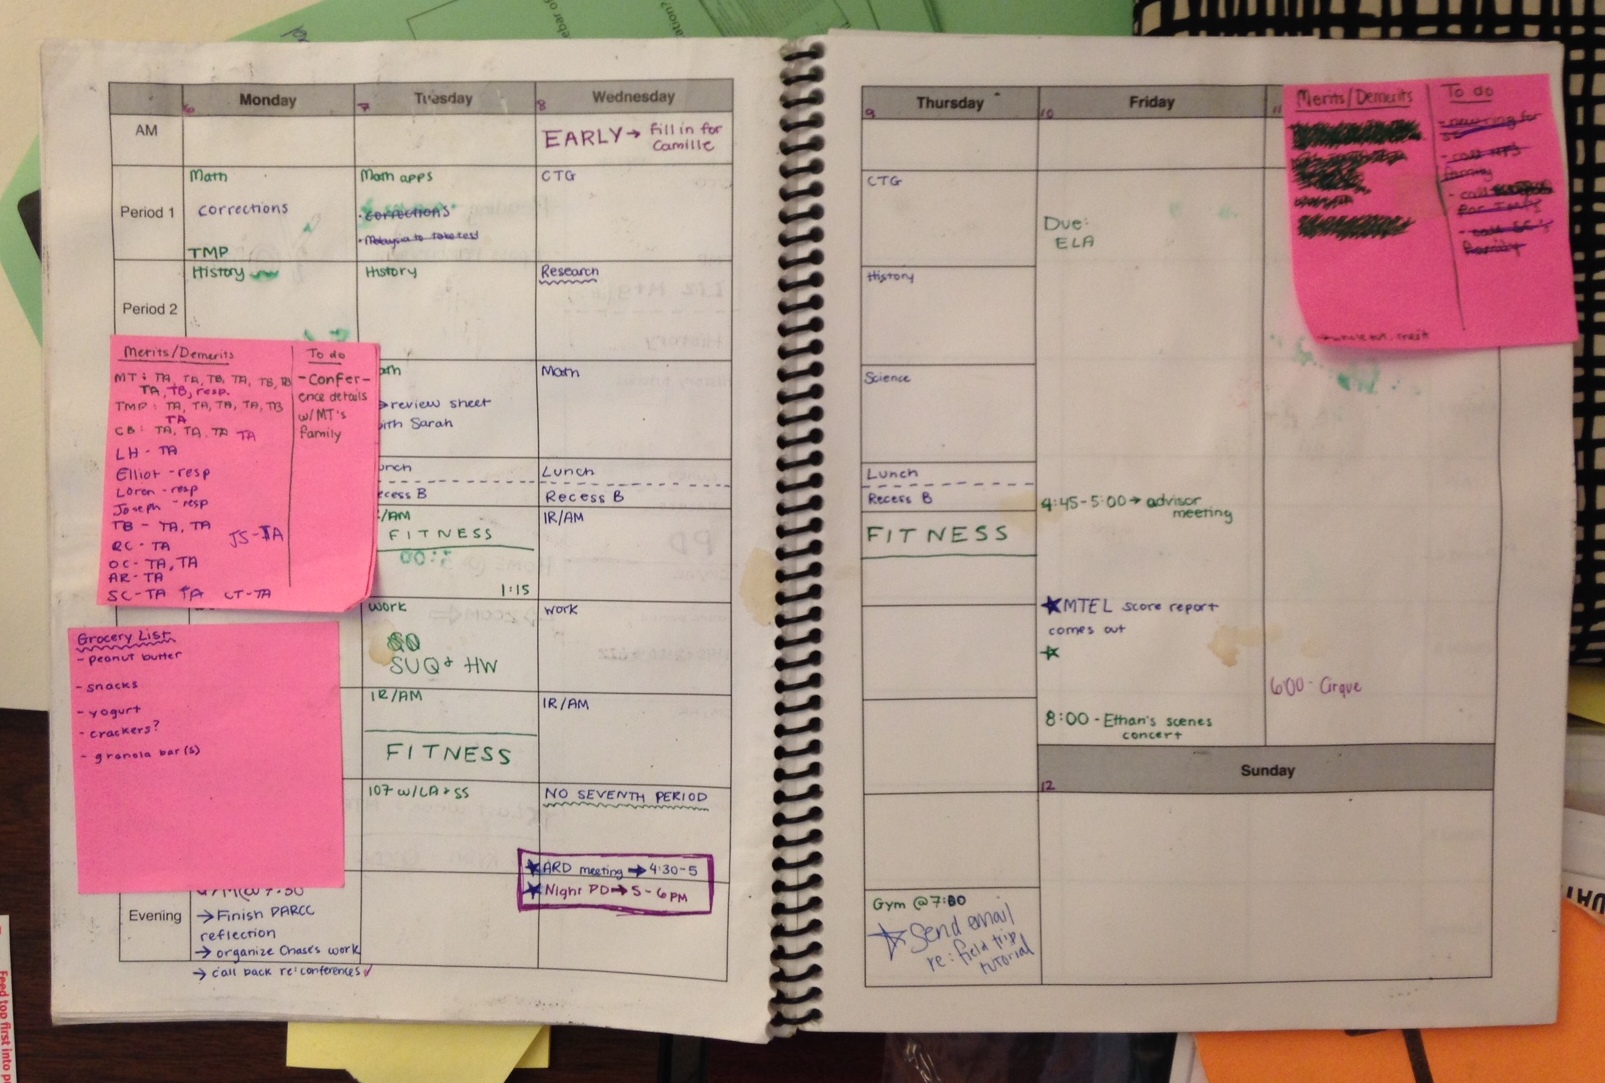 Monday
Tuesday
Wednesday
6
7
8
AM
EARLY → Fill in for
Camille
Period 1
Math
corrections
TMP
Math apps
• corrections
• Malaysia to take test
CTG
Period 2
History
History
Research
Merits/Demerits
To do
MT: TA, TA, TB, TA, TB, TB
TA, TB, resp.
TMP: TA, TA, TA, TA, TB
TA
CB: TA, TA, TA TA
LH - TA
Elliot - resp
Loren - resp
Joseph - resp
TB - TA, TA
JS-TA
RC - TA
OC - TA, TA
AR - TA
SC - TA TA CT-TA
- Confer-
ence details
w/MT's
family
review sheet
with Sarah
Math
Lunch
Recess B
IR/AM
FITNESS
1:15
work
SUQ+ HW
work
IR/AM
FITNESS
IR/AM
107 w/LA + SS
NO SEVENTH PERIOD
★ARD meeting → 4:30-5
★Night PD → 5-6PM
Grocery List
- peanut butter
- snacks
- yogurt
- crackers?
- granola bar(s)
Evening
→ Finish PARCC
reflection
→ organize Chase's work
→ call back re: conferences ✓
Thursday
Friday
9
10
11
CTG
History
Science
Lunch
Recess B
FITNESS
Gym @ 7:00
☆ Send email
re: field trip
tutorial
Due:
ELA
4:45-5:00 → advisor
meeting
★MTEL score report
comes out
8:00 - Ethan's scenes
concert
6:00 - Cirque
Sunday
12
Merits/Demerits
To do
- call
family
- call
family
Feed top first into